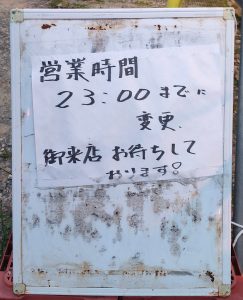 営業時間
23:00までに
変更.
御来店 お待ちして
おります!